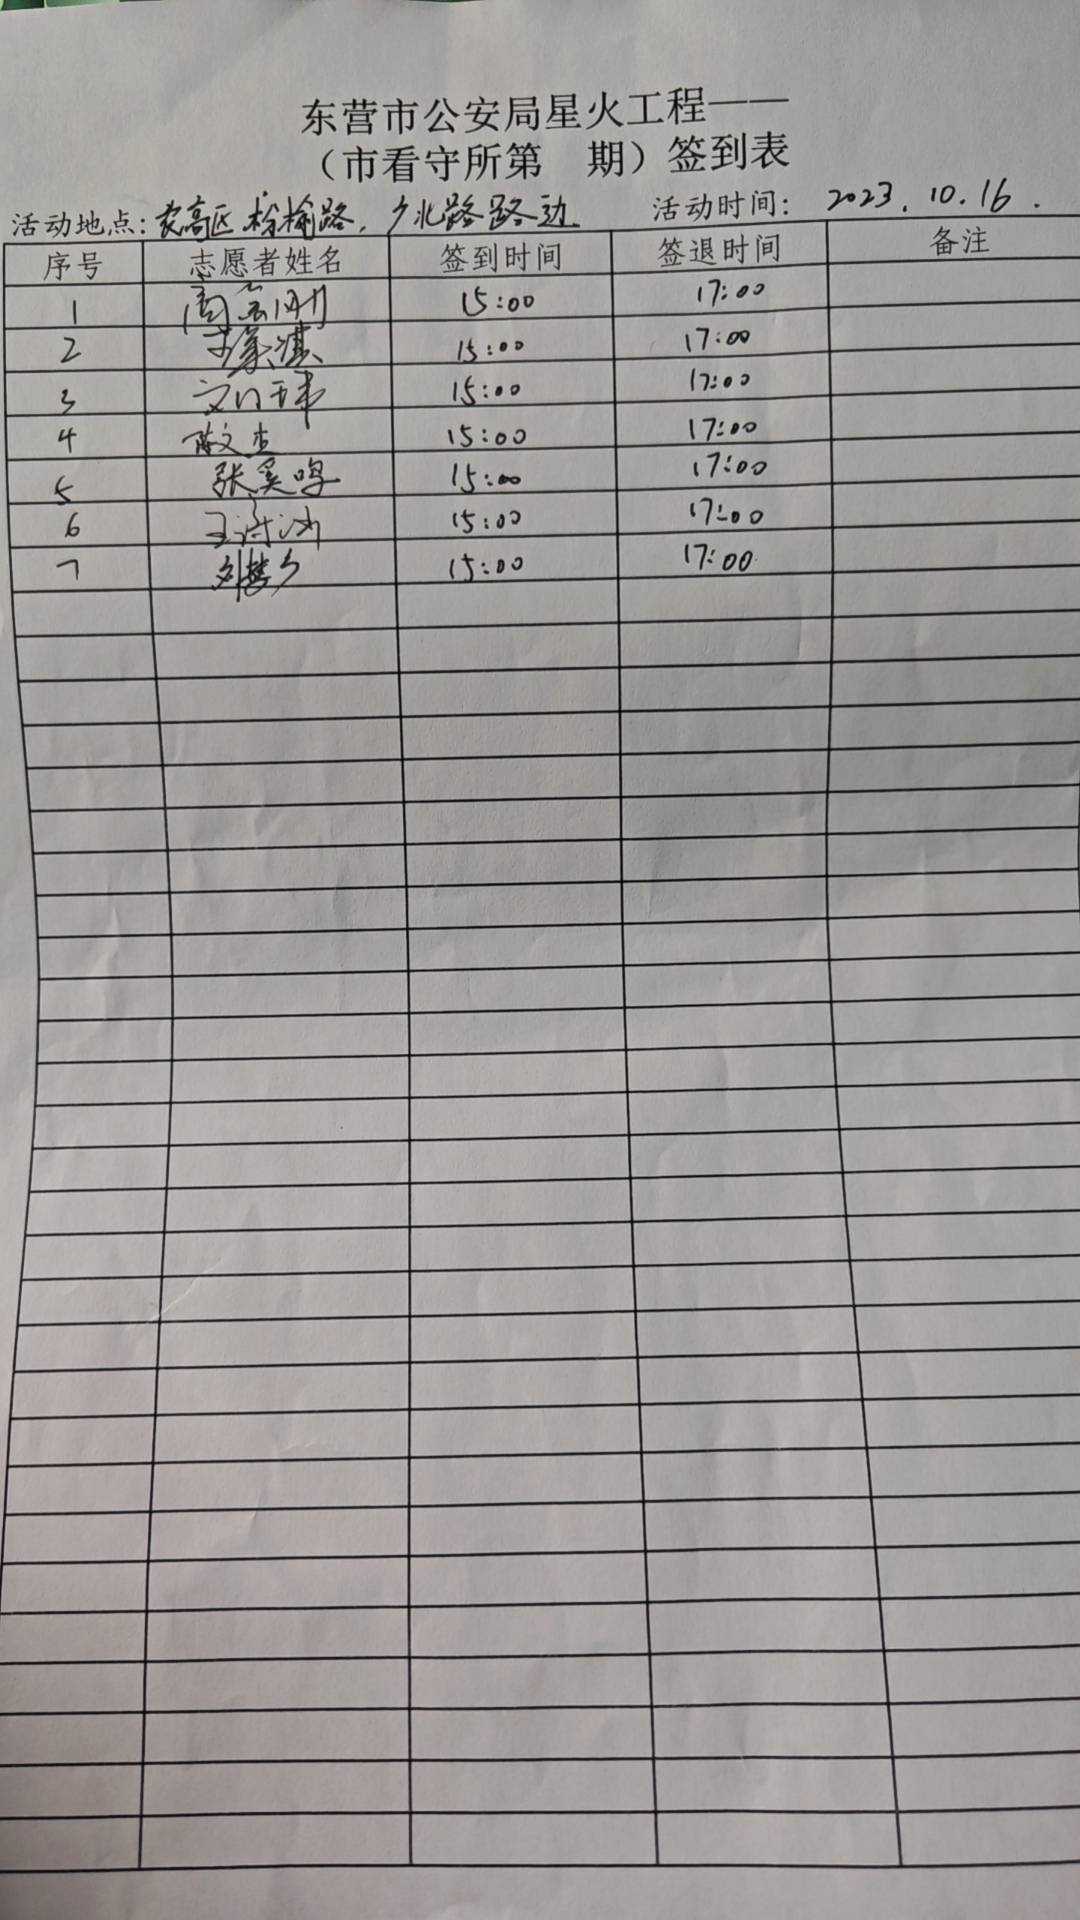 东营市公安局星火工程——
（市看守所第 期）签到表
活动地点：农高区 路，广北路路边 活动时间：2023.10.16.
序号 志愿者姓名 签到时间 签退时间 备注
1 15:00 17:00
2 15:00 17:00
3 15:00 17:00
4 陈文杰 15:00 17:00
5 张奚鸣 15:00 17:00
6 王 15:00 17:00
7 刘梦 15:00 17:00